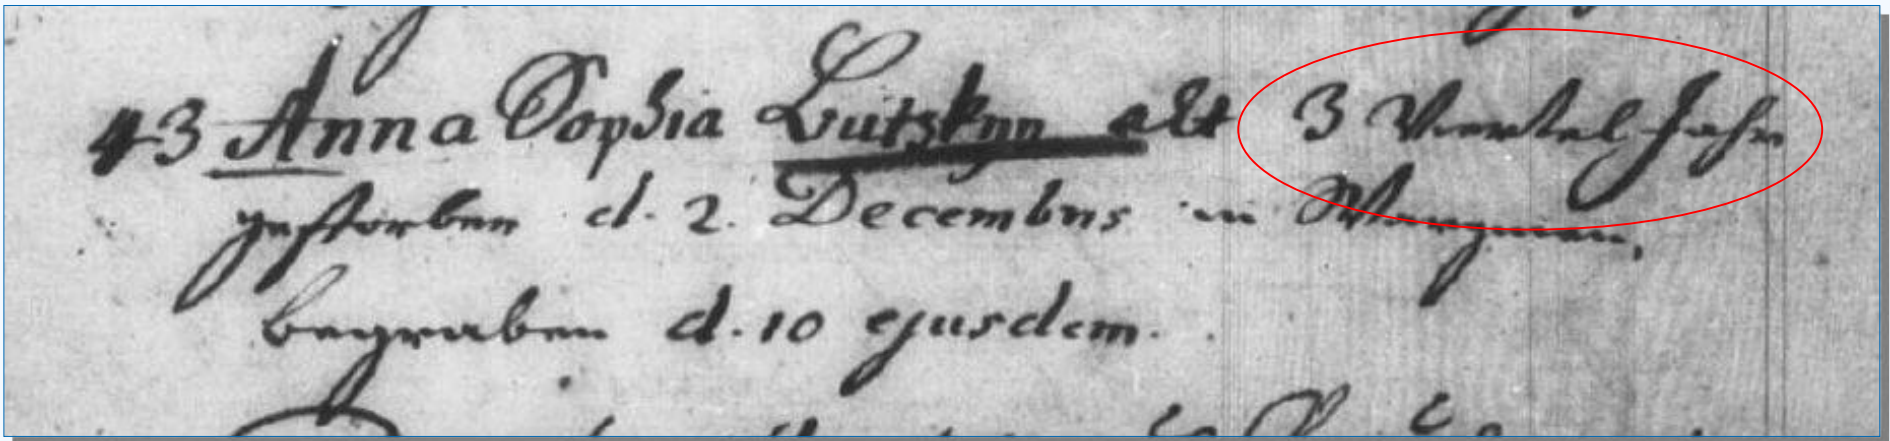 43 Anna Sophia alt 3 Viertel Jahr
gestorben d. 2. Decembris in
begraben d. 10 ejusdem.